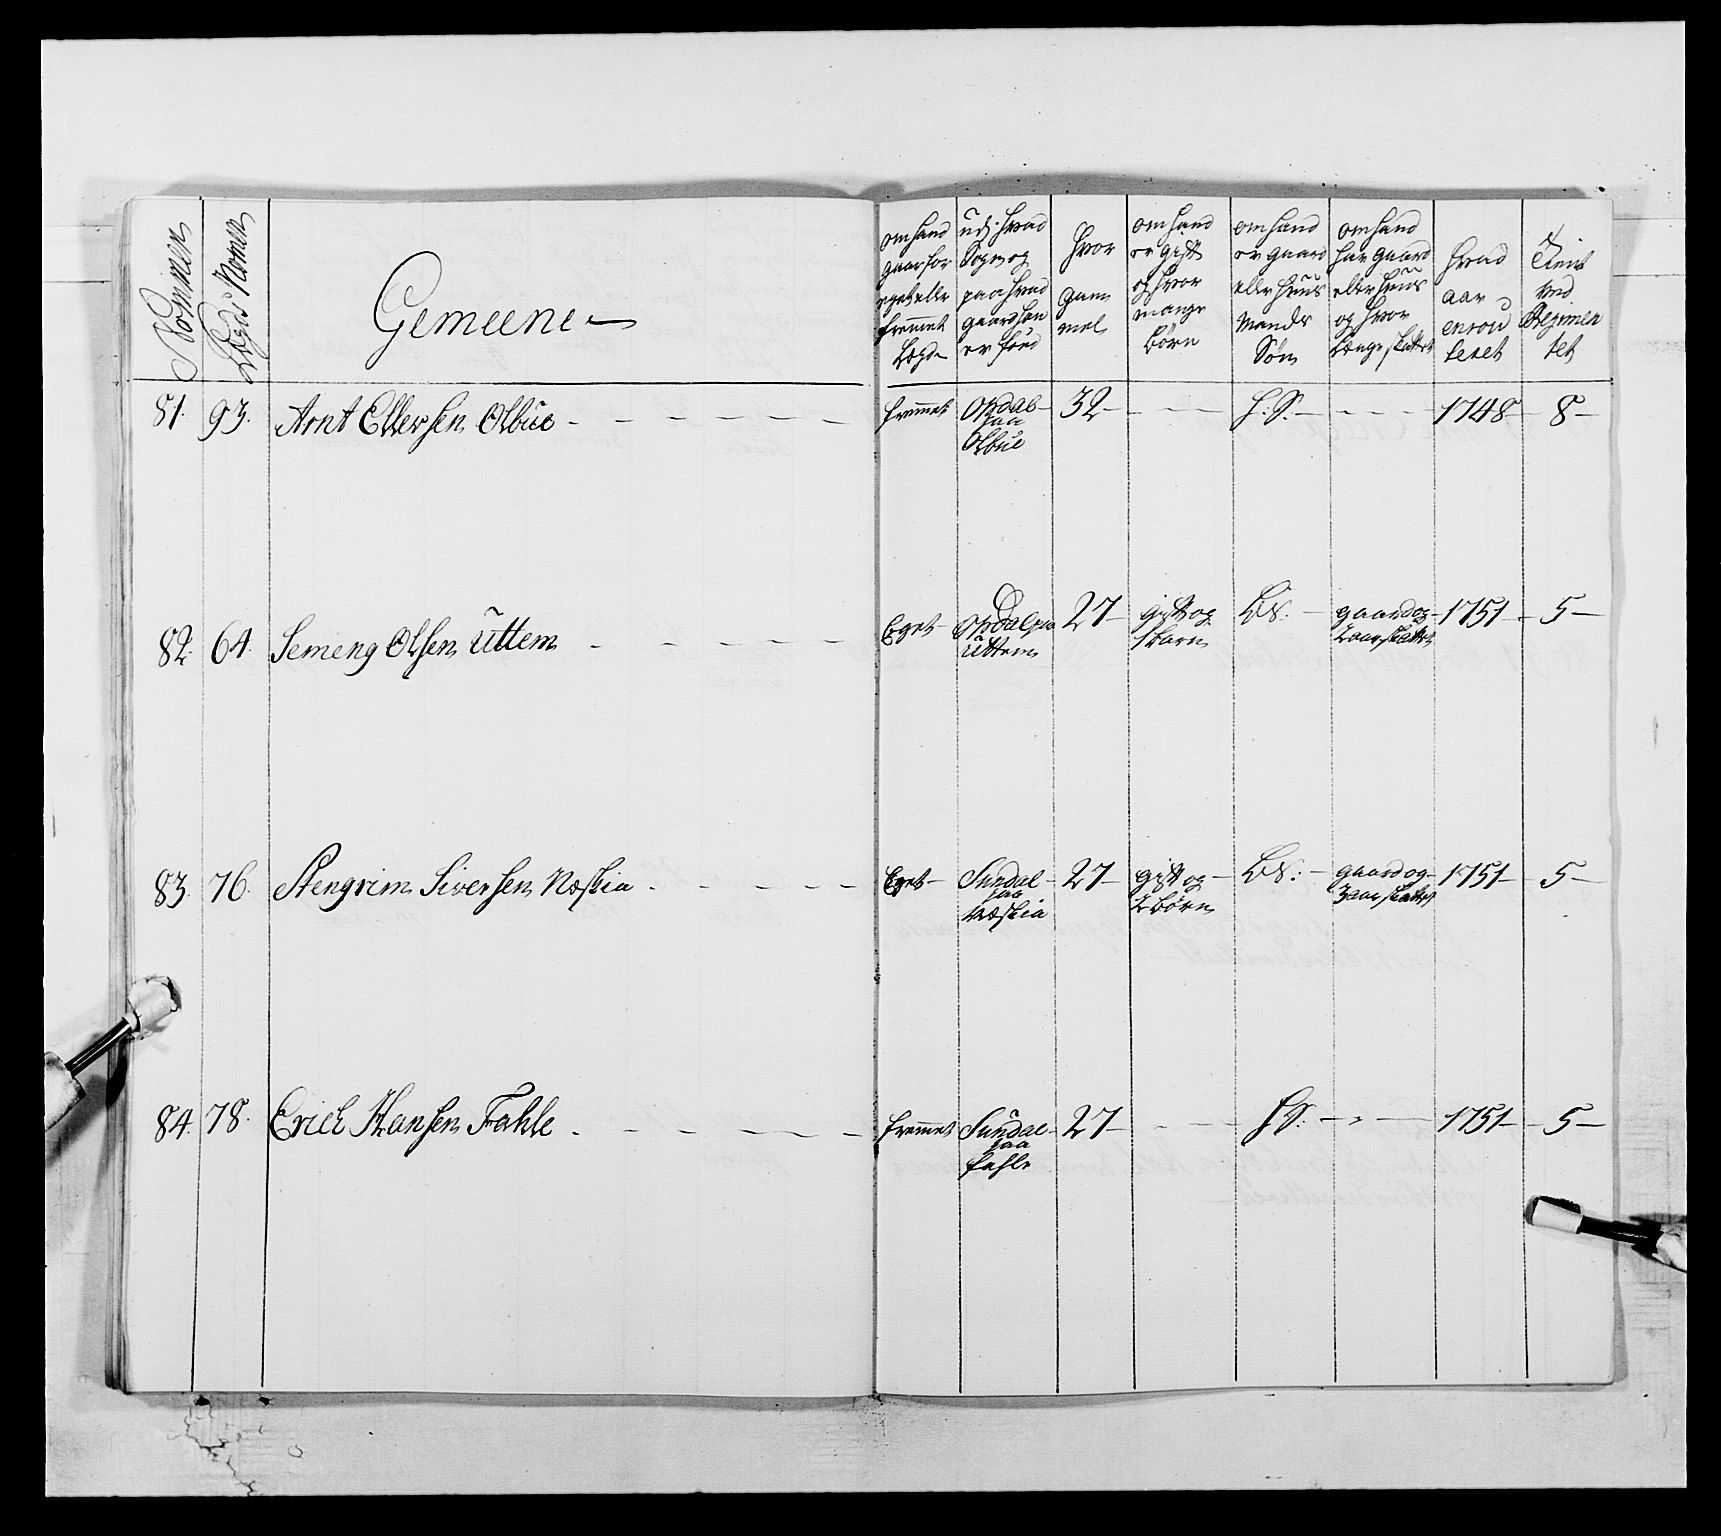 Nommer
Legds Nomer
Gemeene
om hand gaar for eget eller fremmet Legde
udj hvad Sogn og paa hvad gaard han er föed
hvor gammel
om hand er gift og hvor mange börn
om hand er gaard eller huus Mands Sön
om hand har gaard eller huus og hvor længe skattet
hvad aar enroulleret
Tient ved Regimentet
81. 93. Arnt Ellersen Olbue - fremmet Opdal paa Olbue 32 - H:S: - 1748 - 8 -
82. 64. Semeng Olsen Uttem - Eget - Opdal paa Uttem 27 - gift og 1 barn B:S: - gaard og 2 aar skattet 1751 - 5 -
83. 76. Stengrim Siversen Næskia - Eget - Sundal paa Næskia 27 - gift og 2 börn B:S: - gaard og 3 aar skattet 1751 - 5 -
84. 78. Erich Hansen Fahle - fremmet Sundal paa fahle 27 - H:S: - 1751 - 5 -